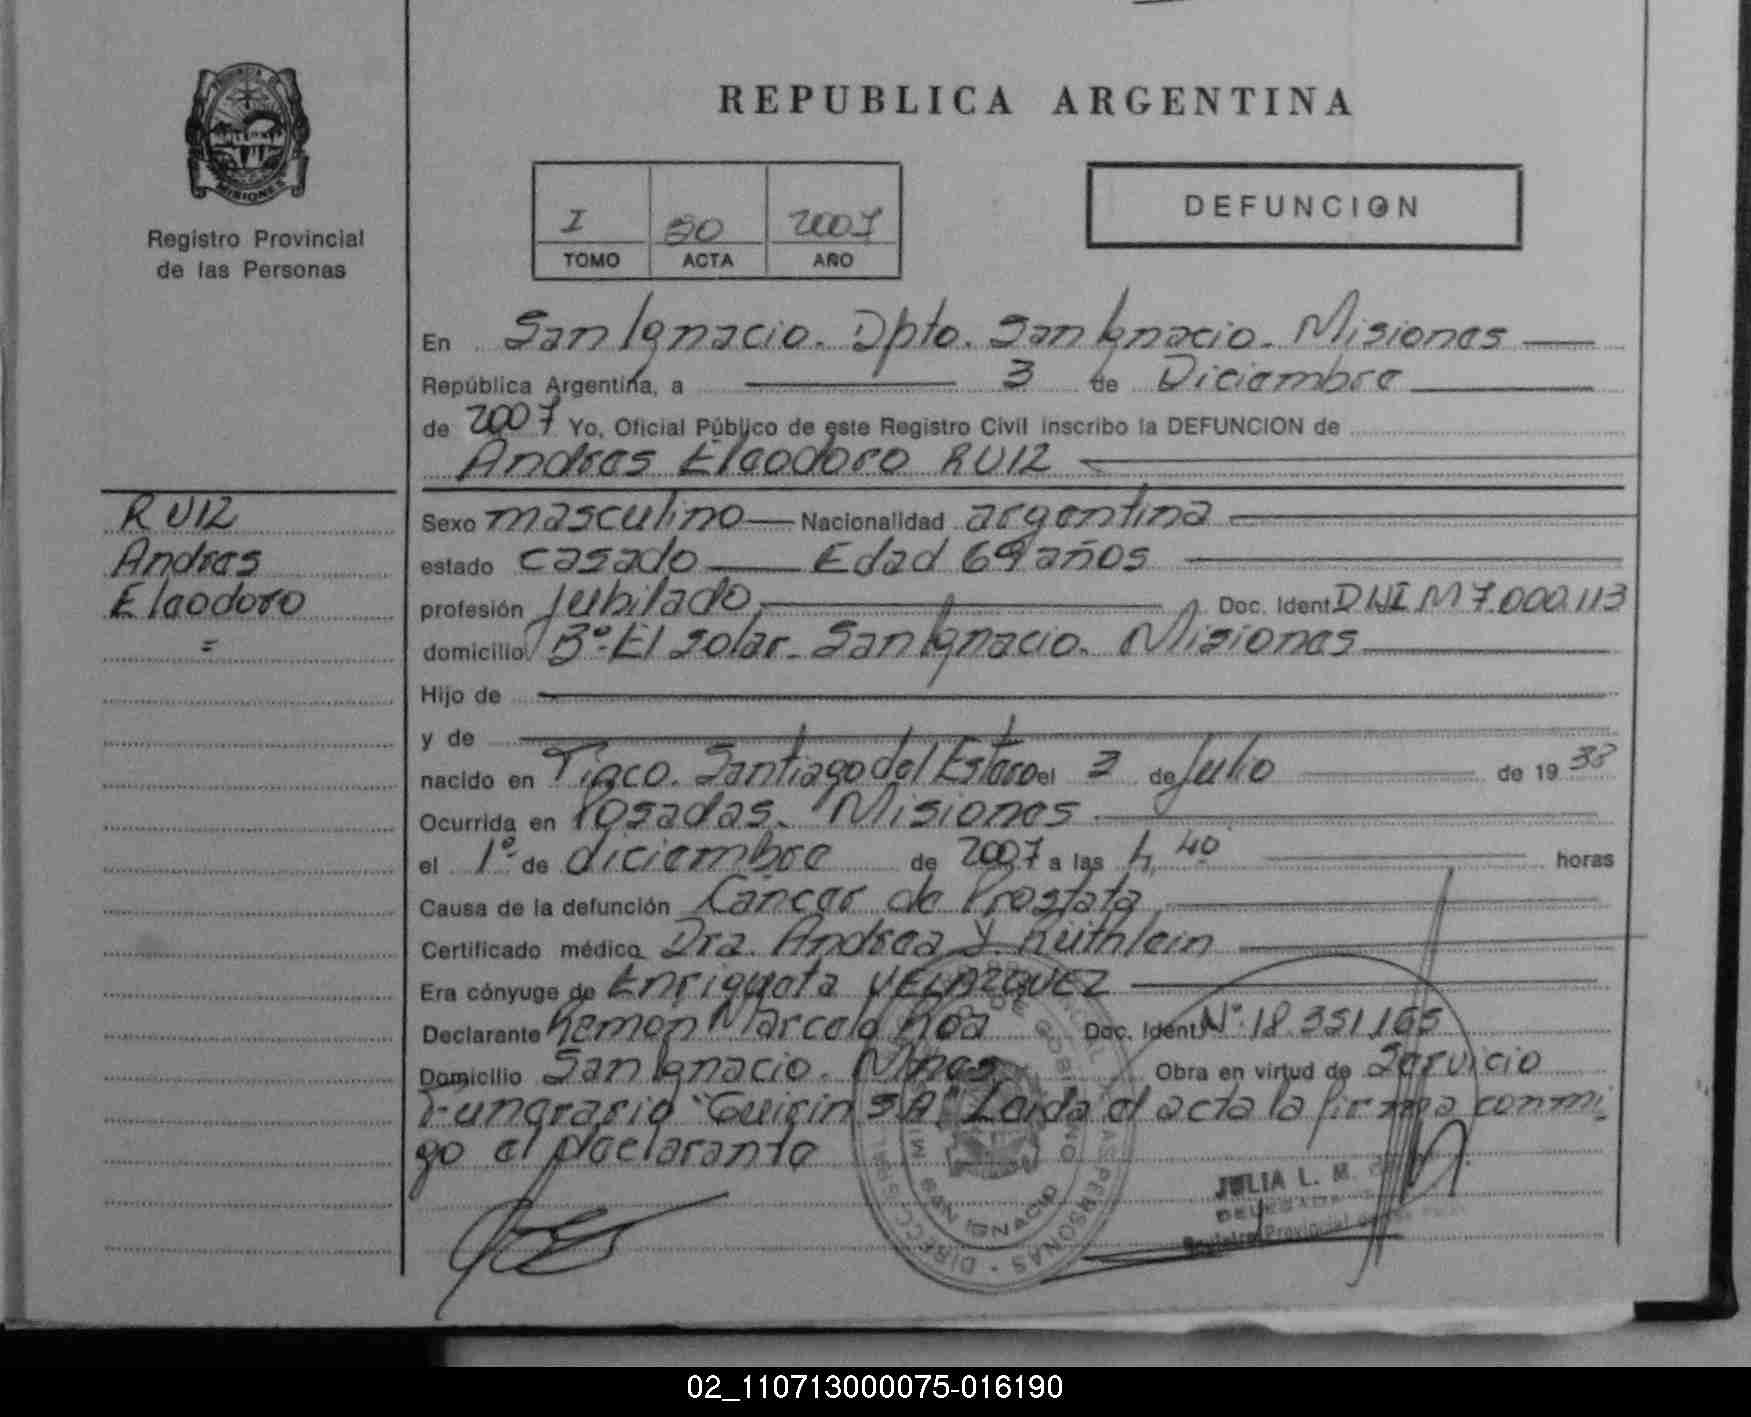 REPUBLICA ARGENTINA
PROVINCIA DE
MISIONES
Registro Provincial
de las Personas
I 90 2007
TOMO ACTA AÑO
DEFUNCION
En San Ignacio. Dpto. San Ignacio. Misiones
República Argentina, a 3 de Diciembre
de 2007 Yo, Oficial Público de este Registro Civil inscribo la DEFUNCION de
Andres Eleodoro RUIZ
RUIZ
Andres
Eleodoro
=
Sexo masculino Nacionalidad argentina
estado casado Edad 69 años
profesión Jubilado Doc. Ident. DNI M 7.000.113
domicilio Bº El Solar. San Ignacio. Misiones
Hijo de
y de
nacido en Santiago del Estero el 3 de Julio de 19 38
Ocurrida en Posadas. Misiones
el 1º de diciembre de 2007 a las 40 horas
Causa de la defunción Cancer de Prostata
Certificado médico Dra. Andrea Y.
Era cónyuge de Enriqueta VELAZQUEZ
Declarante Marcelo Doc. Ident. Nº 18.351.165
Domicilio San Ignacio. Mnes Obra en virtud de Servicio
Funerario "Guirin S.A." Leida el acta la firma conmi
go el declarante
SAN IGNACIO
JULIA L. M.
Registro Provincial de
02_110713000075-016190